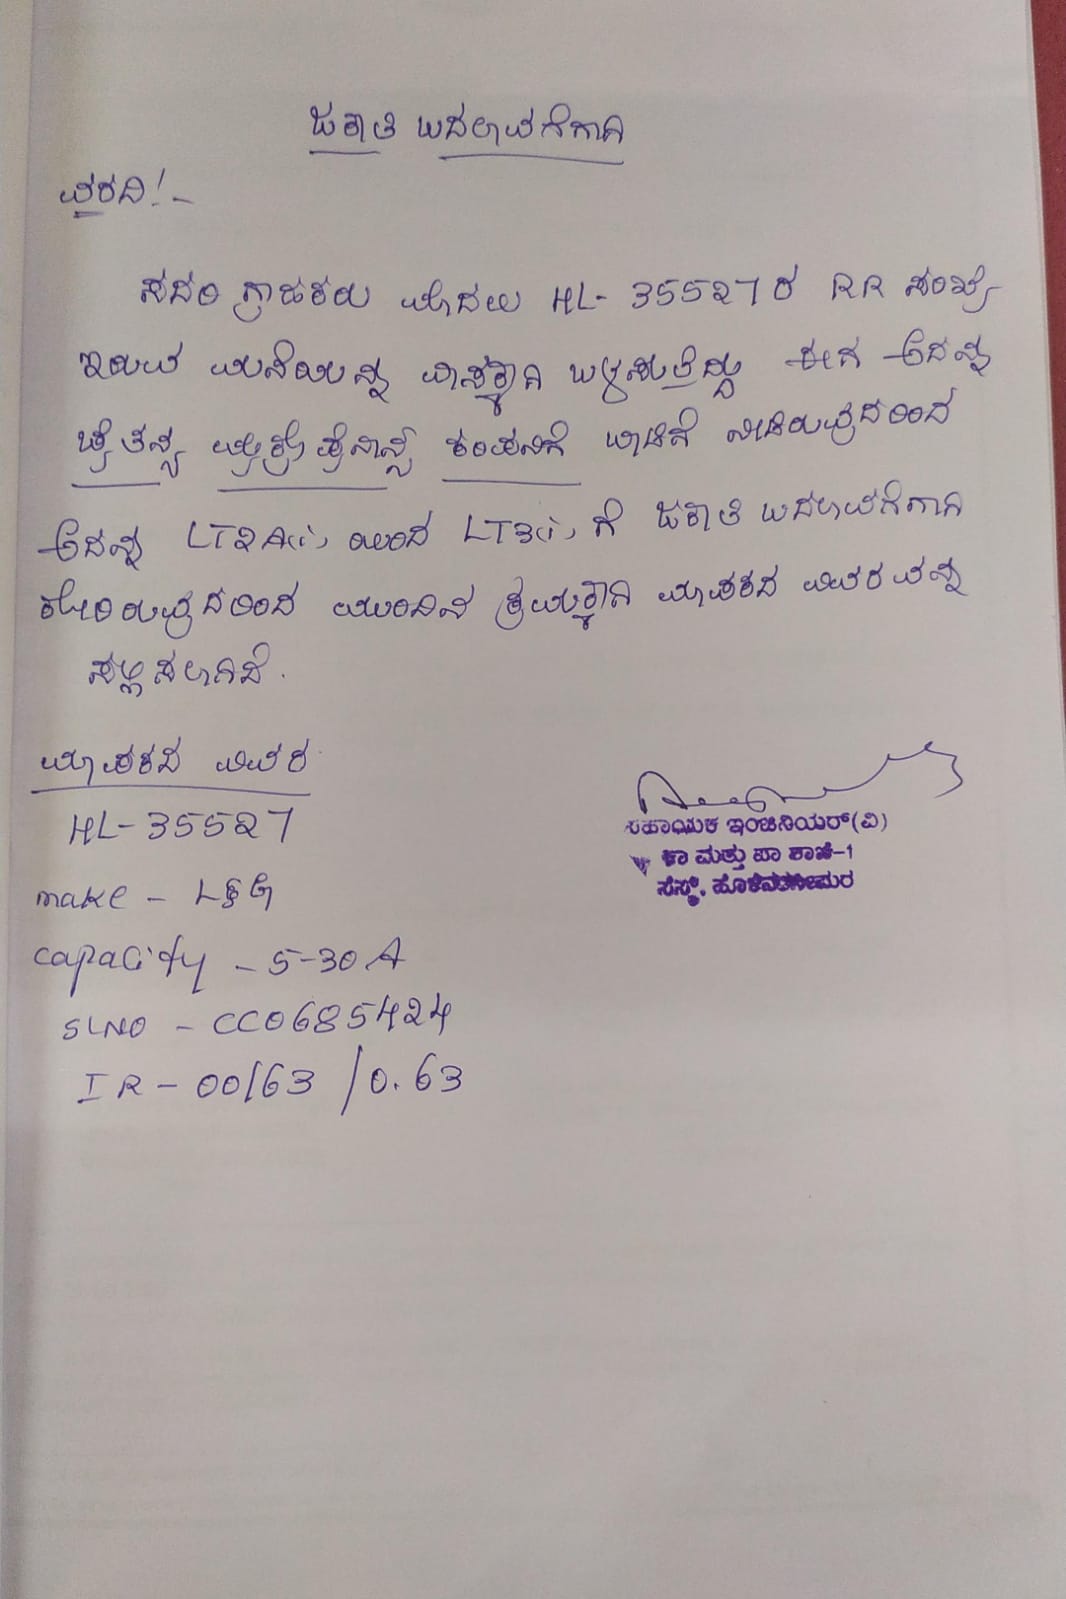 ಜಕಾತಿ ಬದಲಾವಣೆಗಾಗಿ
ವರದಿ:-
ಸದರಿ ಗ್ರಾಹಕರು ಮೊದಲು HL- 35527 ರ RR ಸಂಖ್ಯೆ
ಇರುವ ಮನೆಯನ್ನು ವಾಸಕ್ಕಾಗಿ ಬಳಸುತ್ತಿದ್ದು ಈಗ ಅದನ್ನು
ಚೈತನ್ಯ ಮೈಕ್ರೋ ಫೈನಾನ್ಸ್ ಕಂಪನಿಗೆ ಬಾಡಿಗೆ ನೀಡಿರುವುದರಿಂದ
ಅದನ್ನು LT2A(i) ಯಿಂದ LT3(i) ಗೆ ಜಕಾತಿ ಬದಲಾವಣೆಗಾಗಿ
ಕೋರಿರುವುದರಿಂದ ಮುಂದಿನ ಕ್ರಮಕ್ಕಾಗಿ ಮಾಪಕದ ವಿವರವನ್ನು
ಸಲ್ಲಿಸಲಾಗಿದೆ.
ಮಾಪಕದ ವಿವರ
HL-35527
make - L&G
capacity - 5-30A
SLNO - CC0685424
IR - 00/63 /0.63
ಸಹಾಯಕ ಇಂಜಿನಿಯರ್(ವಿ)
ಕಾ ಮತ್ತು ಪಾ ಶಾಖೆ-1
ಸೆಸ್ಕ್, ಹೊಳೆನರಸೀಪುರ